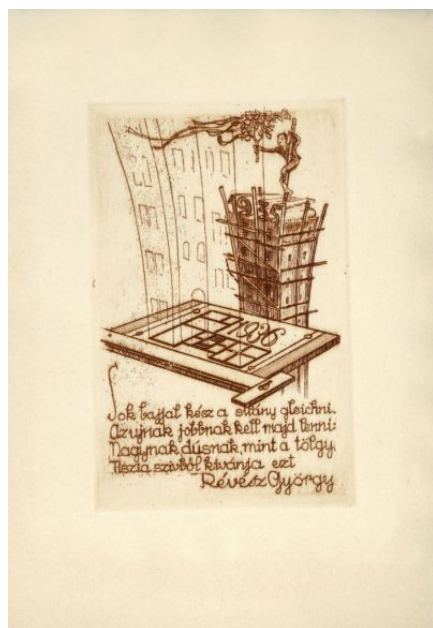 1935
1936
Sok bajjal kész a silány gleichni.
Az ujnak jobbnak kell majd lenni:
Nagynak dúsnak, mint a tölgy,
Tiszta szivből kivánja ezt
Révész György